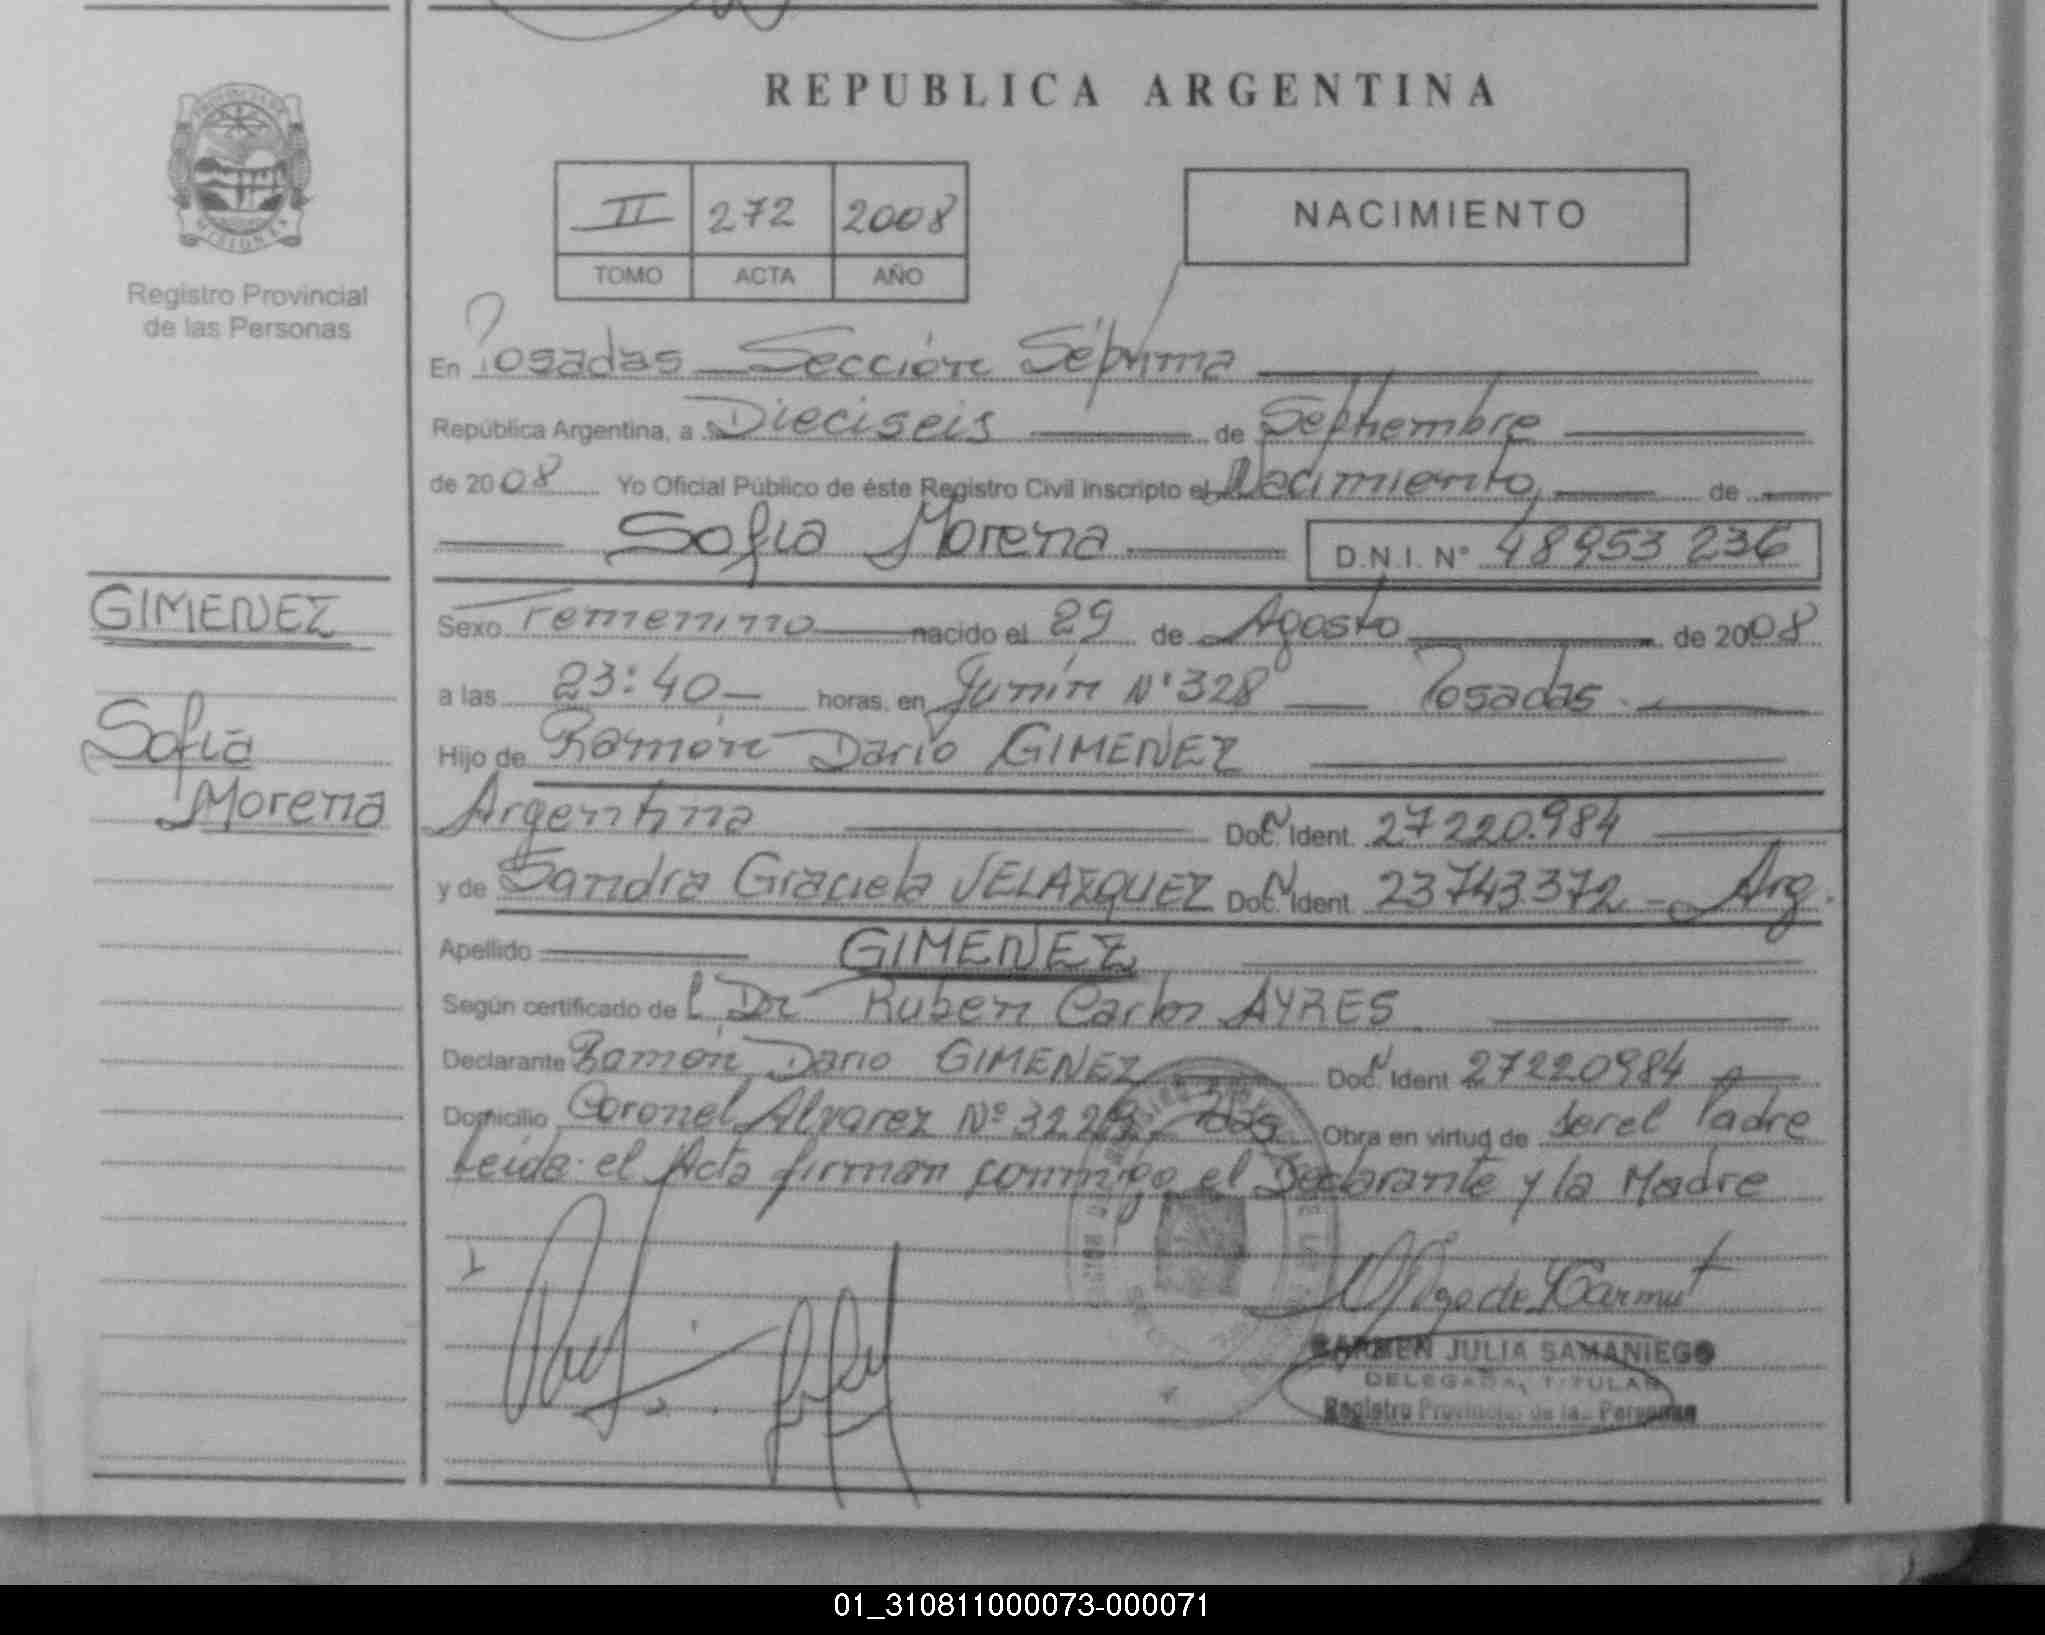 REPUBLICA ARGENTINA
MISIONES
Registro Provincial
de las Personas
II 272 2008
TOMO ACTA AÑO
NACIMIENTO
En Posadas Sección Séptima
República Argentina, a Dieciseis de Septiembre
de 2008 Yo Oficial Público de éste Registro Civil inscripto el Nacimiento, de
Sofia Morena D.N.I. N° 48953 236
GIMENEZ
Sofia
Morena
Sexo Femenino nacido el 29 de Agosto de 2008
a las 23:40 horas, en Junín N° 328 Posadas
Hijo de Ramón Dario GIMENEZ
Argentina Doc. Ident. 27220.984
y de Sandra Graciela VELAZQUEZ Doc. Ident. 23743.372 - Arg.
Apellido GIMENEZ
Según certificado del Dr Ruben Carlos AYRES
Declarante Ramón Dario GIMENEZ Doc. Ident 27220984
Domicilio Coronel Alvarez Nº Obra en virtud de ser el Padre
Leida el Acta firman conmigo el Declarante y la Madre
CARMEN JULIA SAMANIEGO
DELEGADA TITULAR
Registro Provincial de las Personas
01_310811000073-000071